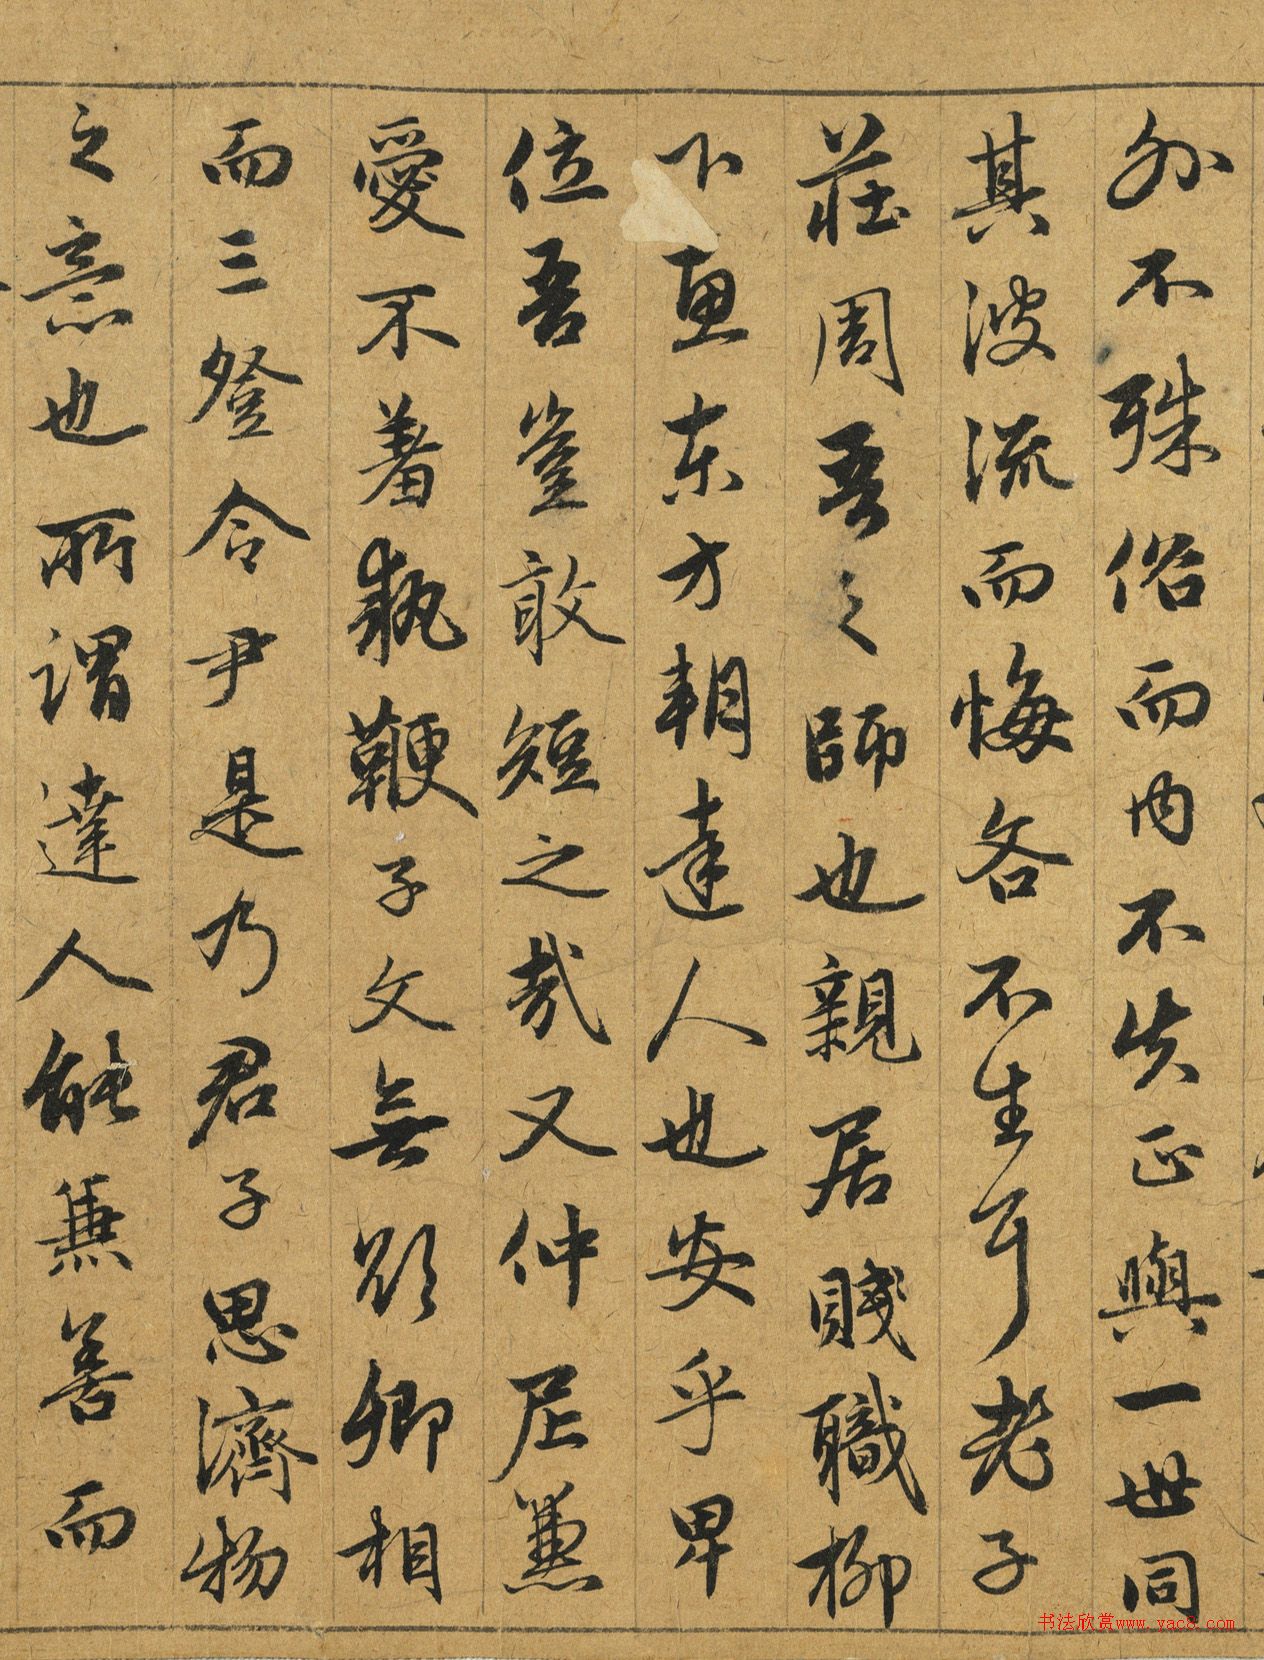 外不殊俗而内不失正與一世同
其波流而悔吝不生耳老子
莊周吾之師也親居賤職柳
下惠東方朔達人也安乎卑
位吾豈敢短之哉又仲尼兼
愛不著執鞭子文無欲卿相
而三登令尹是乃君子思濟物
之意也所謂達人能兼善而
书法欣赏www.yac8.com